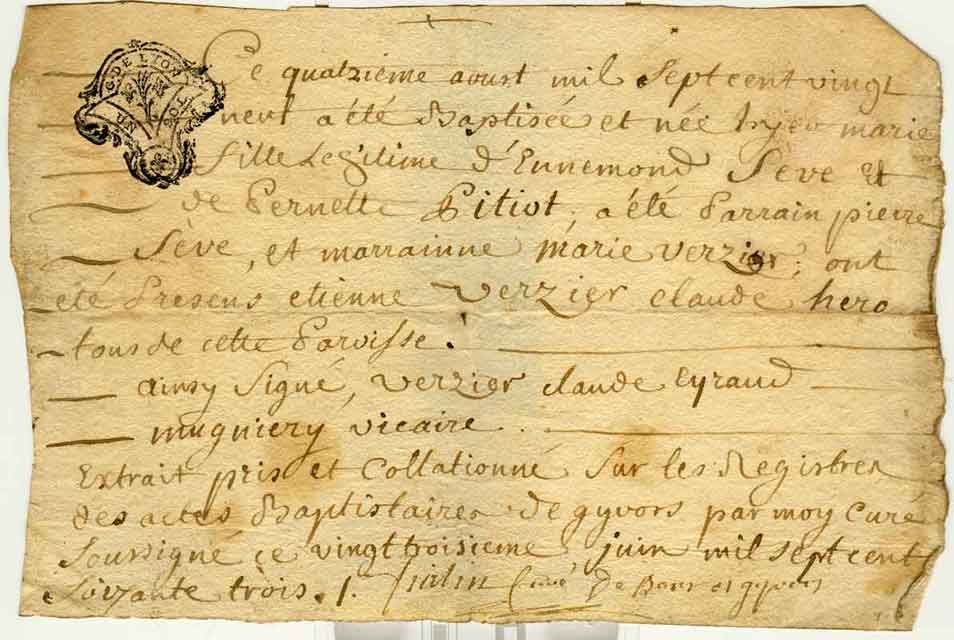 G. DE LYON
UN SOL
Ce quatzieme aoust mil Sept cent vingt
neuf a été Baptisée et née hyer marie
fille Legitime d'Ennemond Seve et
de Pernette Pitiot, a été Parrain pierre
Séve, et marrainne marie verzier; ont
été Presens etienne verzier claude
tous de cette Parroisse.
ainsy Signé, verzier claude eyraud
mugniery vicaire.
Extrait pris et Collationné Sur les Registres
des actes Baptistaires de gyvors par moy Curé
Soussigné ce vingt troisieme juin mil sept cent
Soixante trois. Curé De Bans et gyvors